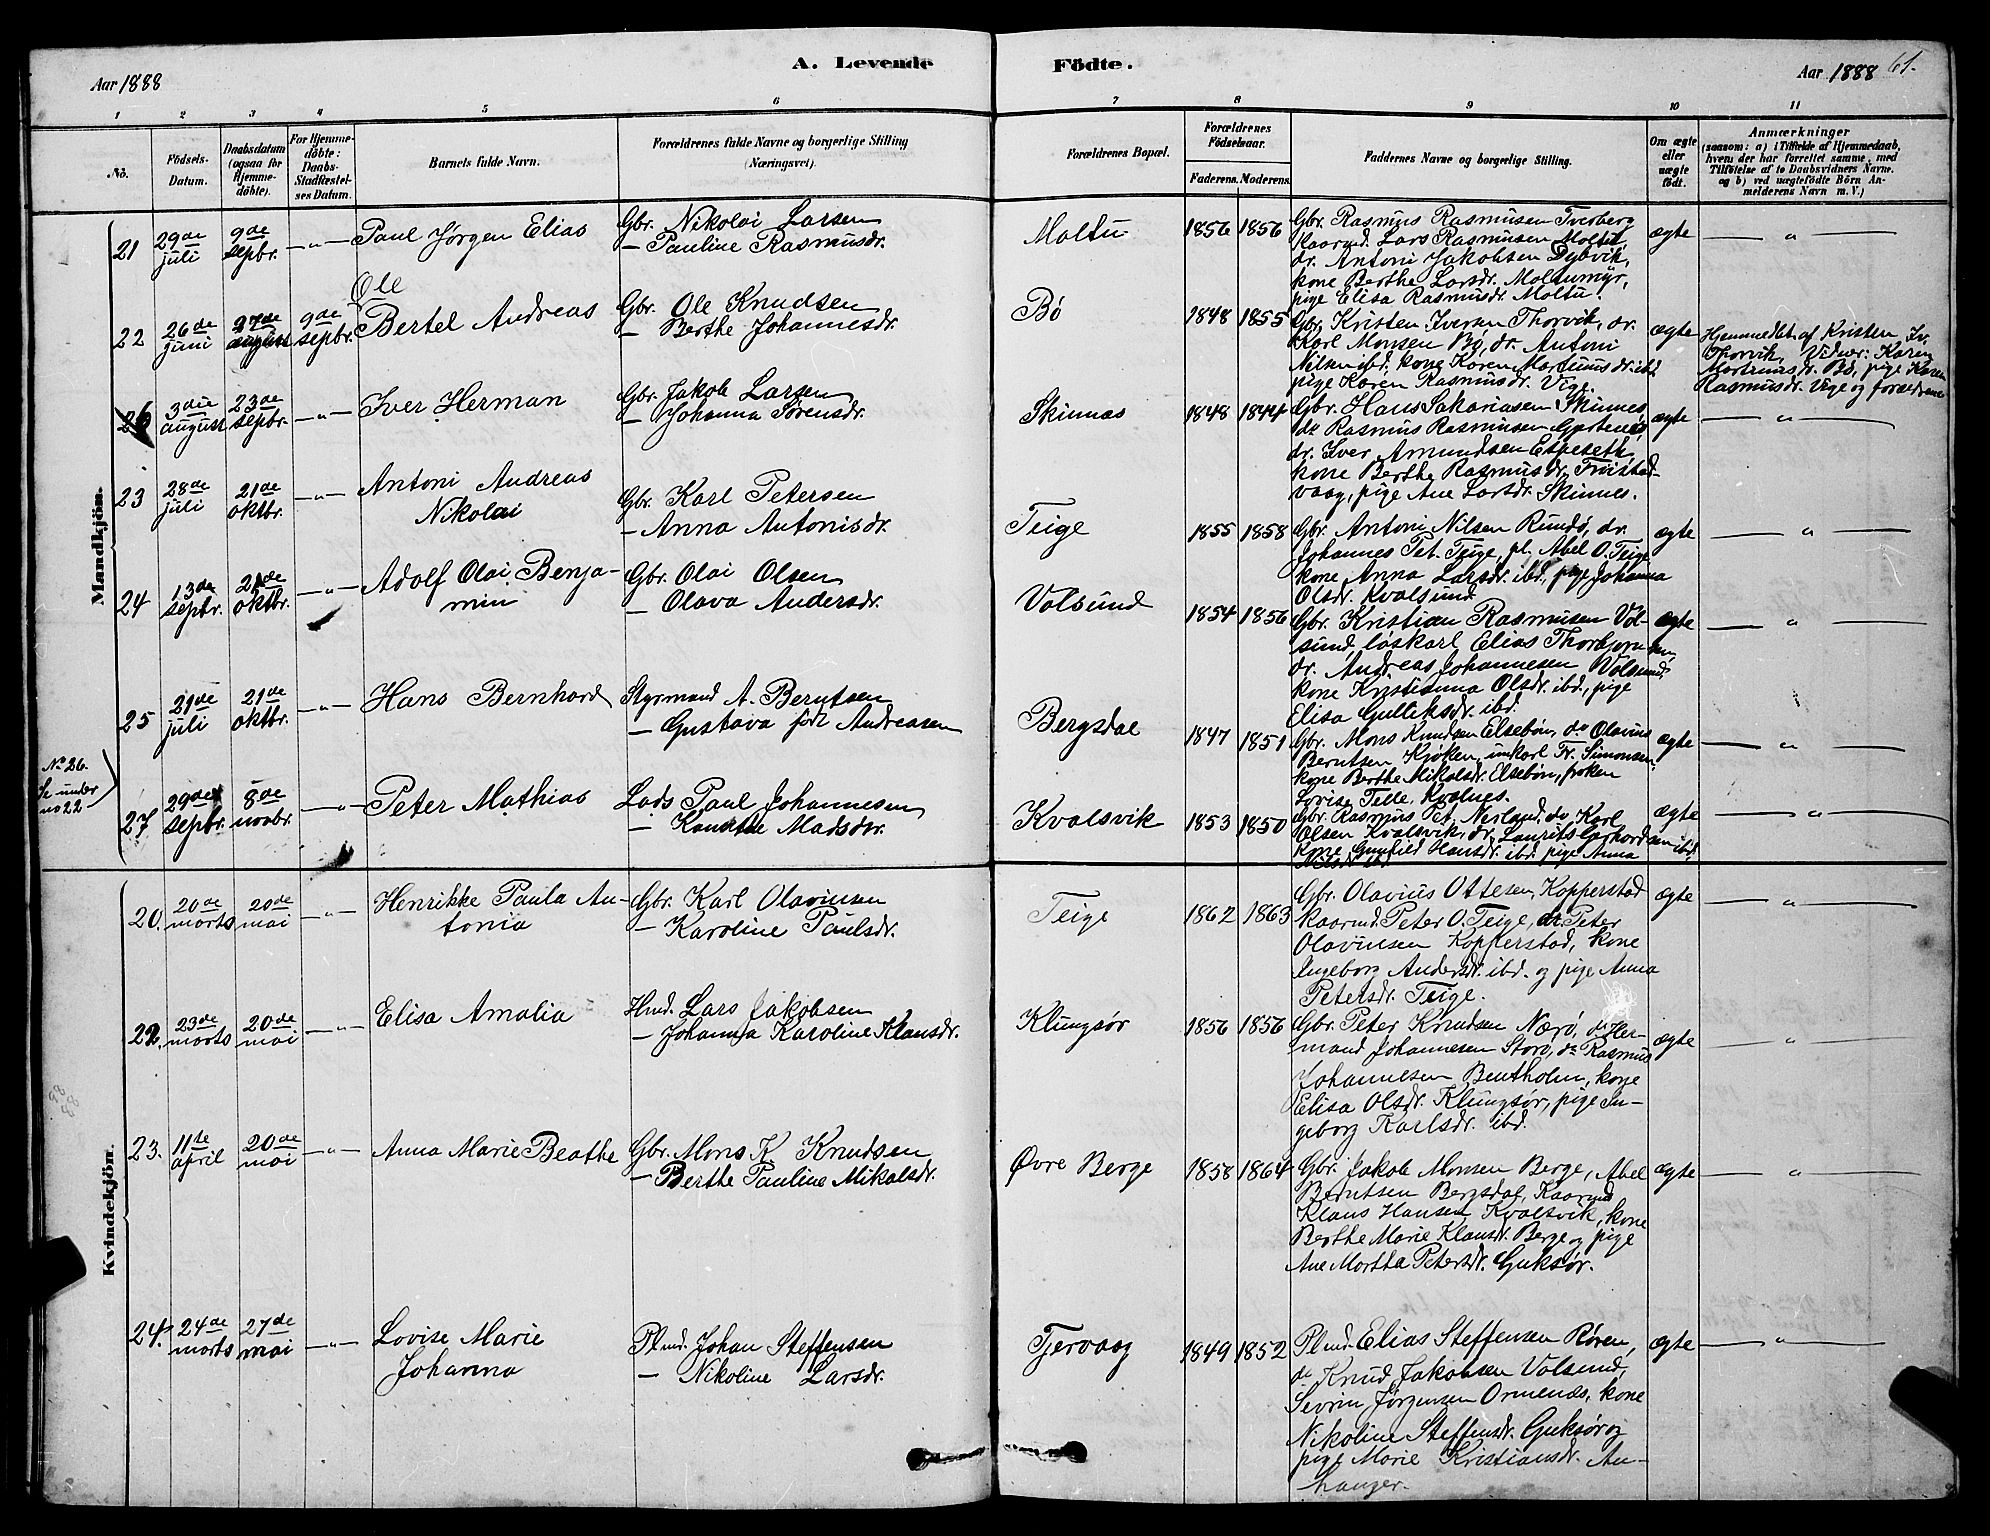 Aar 1888
A. Levende
Födte.
Aar 1888
61.
1 2 3 4 5 6 7 8 9 10 11
No.
Födsels-
Datum.
Daabsdatum
(ogsaa for
Hjemme-
döbte).
For Hjemme-
döbte:
Daabs-
Stadfæstel-
ses Datum.
Barnets fulde Navn.
Forældrenes fulde Navne og borgerlige Stilling
(Næringsvei).
Forældrenes Bopæl.
Forældrenes
Födselsaar.
Faderens. Moderens.
Faddernes Navne og borgerlige Stilling.
Om ægte
eller
uægte
födt.
Anmærkninger
(saasom: a) i Tilfælde af Hjemmedaab,
hvem der har forrettet samme, med
Tilföielse af to Daabsvidners Navne.
og b) ved uægtefödte Börn An-
melderens Navn m. V.)
Mandkjön.
21
29de
juli
9de
sepbr.
Paul Jørgen Elias
Gbr. Nikolai Larsen
— Pauline Rasmusdr.
Moltu
1856 1856
Gbr. Rasmus Rasmusen Tverberg
Kaarmd. Lars Rasmusen Moltu,
dr. Antoni Jakobsen Dybvik,
kone Berthe Larsdr. Moltumyr,
pige Elisa Rasmusdr. Moltu.
ægte
— " —
22
26de
juni
27de
august
9de
sepbr.
Ole
Bertel Andreas
Gbr. Ole Knudsen
— Berthe Johannesdr.
Bø
1848 1855
Gbr. Kristen Iversen Thorvik, dr.
Karl Monsen Bø, dr. Antoni
Nilsen ibd. kone Karen Martinusdr. ibd.
pige Karen Rasmusdr. Vige.
ægte
Hjemmedøbt af Kristen Iv.
Thorvik. Vidner: Karen
Martinusdr. Bø, pige Karen
Rasmusdr. Vige og forældrene
26
3die
august
23de
sepbr.
— " —
Iver Herman
Gbr. Jakob Larsen
— Johanna Sørensdr.
Skinnas
1848 1844
Gbr. Hans Sakariasen Skinnes,
dr. Rasmus Rasmusen
dr. Iver Amundsen Espeseth
kone Berthe Rasmusdr. Fristad-
vaag, pige Ane Larsdr. Skinnes.
ægte
— " —
23
28de
juli
21de
oktbr.
— " —
Antoni Andreas
Nikolai
Gbr. Karl Petersen
— Anna Antonisdr.
Teige
1855 1858
Gbr. Antoni Nilsen Rundø, dr.
Johannes Pet. Teige, pl. Abel O. Teige
kone Anna Larsdr. ibd., pige Johanna
Olsdr. Kvalsund.
ægte
— " —
24
13de
sepbr.
21de
oktbr.
— " —
Adolf Olai Benja-
min
Gbr. Olai Olsen
— Olava Andersdr.
Volsund
1854 1856
Gbr. Kristian Rasmusen Vol-
sund, løskarl Elias Thorbjørnsen,
dr. Andreas Johannesen Volsund,
kone Kristianna Olsdr. ibd., pige
Elisa Gulliksdr. ibd.
ægte
— " —
25
21de
juli
21de
oktbr.
— " —
Hans Bernhard
Styrmand A. Berntsen
— Gustava født Andreasen
Bergsdal
1847 1851
Gbr. Mons Knudsen Elsebøn, do Olavius
Berntsen Kjøken, unkarl Fr. Simonsen,
kone Berthe Mikalsdr. Elsebøn, frøken
Lovise Telle, Kvalnes.
ægte
— " —
No 26.
Se under
no 22
27
29de
sepbr.
8de
novbr.
— " —
Peter Mathias
Lods Paul Johannesen
— Madsdr.
Kvalsvik
1853 1850
Gbr. Rasmus Pet. Nerland, do Karl
Olsen Kvalsvik, dr. Laurits ibd.
kone Gunhild Hansdr. ibd. pige Anna
Nilsdr. ibd.
ægte
— " —
Kvindekjön.
20.
20de
marts
20de
mai
— " —
Henrikke Paula An-
tonia
Gbr. Karl Olavinsen
— Karoline Paulsdr.
Teige
1862 1863
Gbr. Olavius Ottesen, Kopperstad
kaarmd. Peter O. Teige, dr. Peter
Olavinsen Kopperstad, kone
Ingeborg Andersdr. ibd. og pige Anna
Petersdr. Teige.
ægte
— " —
22.
23de
marts
20de
mai
— " —
Elisa Amalia
Hmd. Lars Jakobsen
— Johanna Karoline Klausdr.
Klungsør
1856 1856
Gbr. Peter Knudsen Nærø, do Her-
mand Johannesen Storø, do Rasmus
Johannesen Bentholm, kone
Elisa Olsdr. Klungsør, pige In-
geborg Karlsdr. ibd.
ægte
— " —
88
88
23.
11te
april
20de
mai
— " —
Anna Marie Beathe
Gbr. Mons K. Knudsen
— Berthe Pauline Mikalsdr.
Øvre Berge
1858 1864
Gbr. Jakob Monsen Berge, Abel
Berntsen Bergsdal, Kaarmd.
Klaus Hansen Kvalsvik, kone
Berthe Marie Klausdr. Berge og pige
Ane Martha Petersdr. Gjuksør.
ægte
— " —
24.
24de
marts
27de
mai
— " —
Lovise Marie
Johanna
Plmd. Johan Steffensen
— Nikoline Larsdr.
Tjervaag
1849 1852
Plmd. Elias Steffensen Røren,
do Knud Jakobsen Volsund,
Sivrin Jørgensen Ormenes, kone
Nikoline Steffensdr. Gjuksør og
pige Marie Kristiansdr. An-
hanger.
ægte
— " —